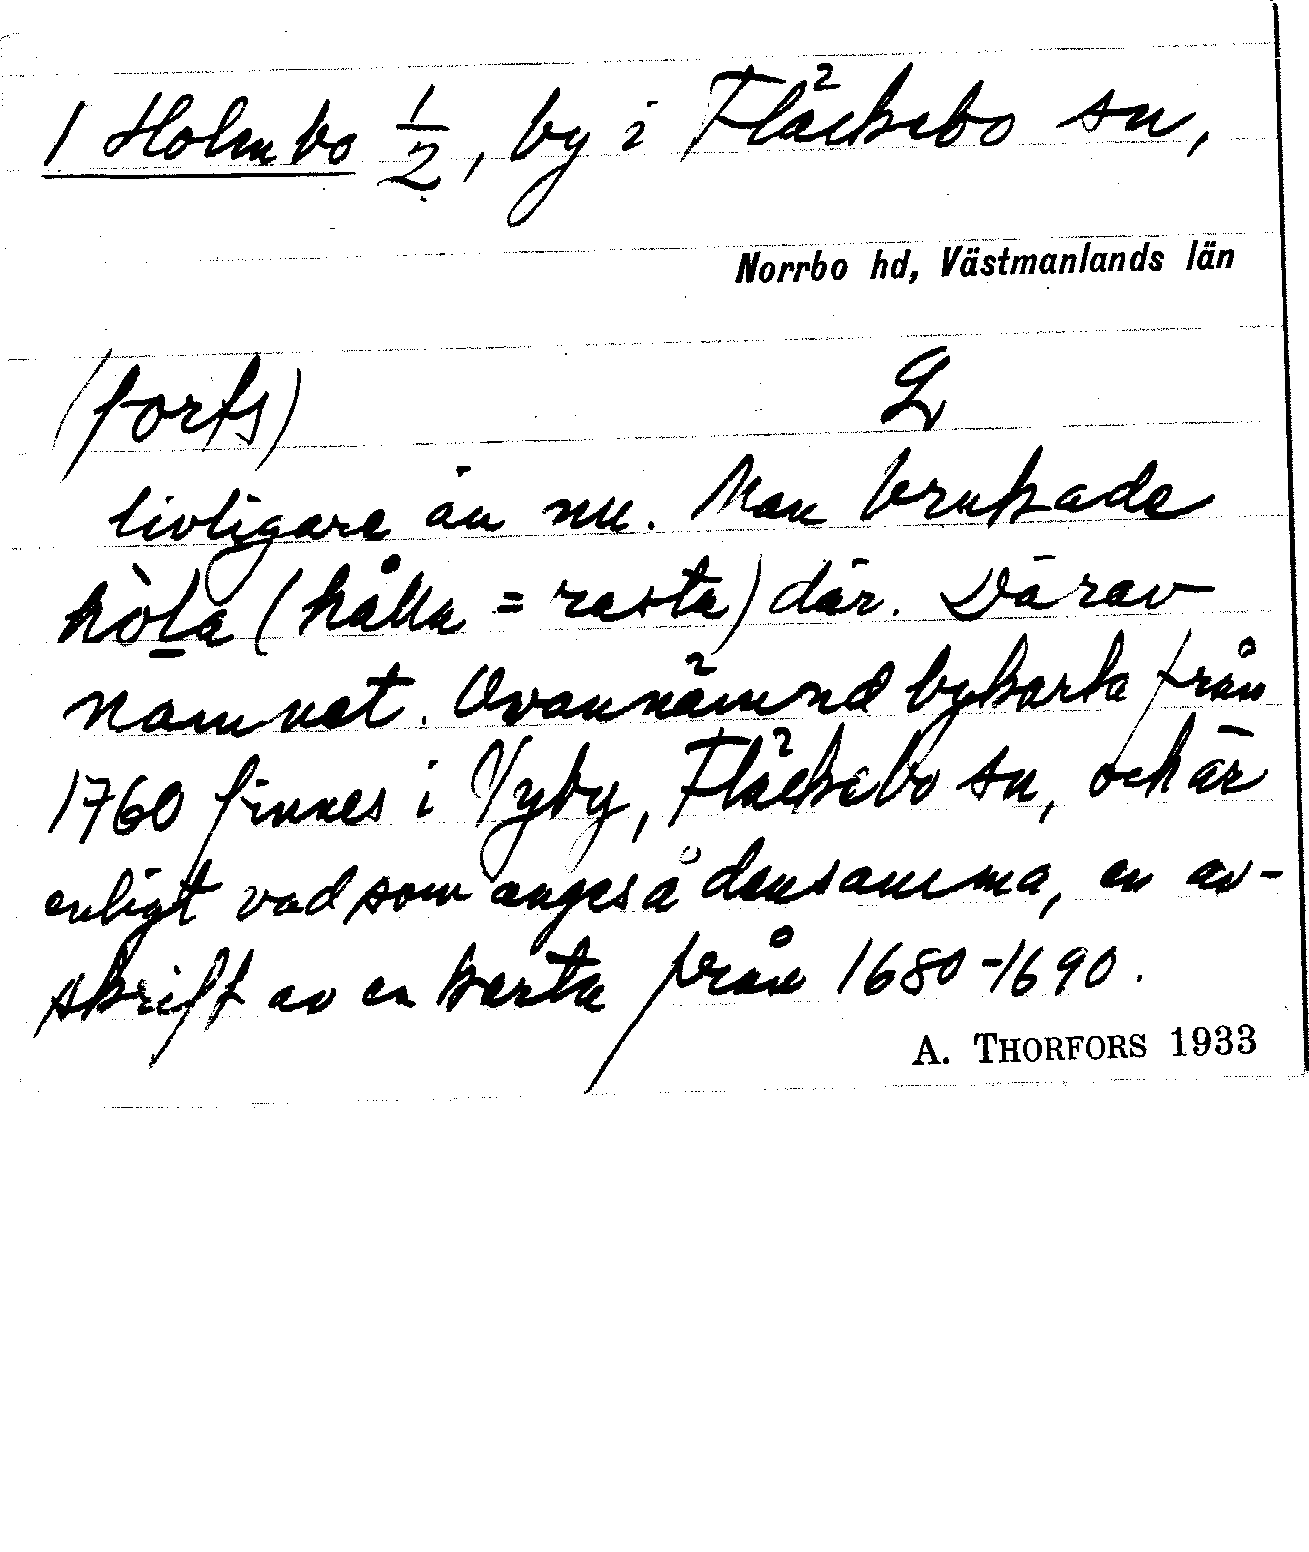 1 Holmbo 1/2, by i Fläckebo sn,
Norrbo hd, Västmanlands län
(forts) 2
livligare än nu. Man brukade
hòla (hålla = rasta) där. Därav
namnet. Ovannämnd bykarta från
1760 finnes i Vyby, Fläckebo sn, och är
enligt vad som anges å densamma, en av-
skrift av en karta från 1680-1690.
A. THORFORS 1933